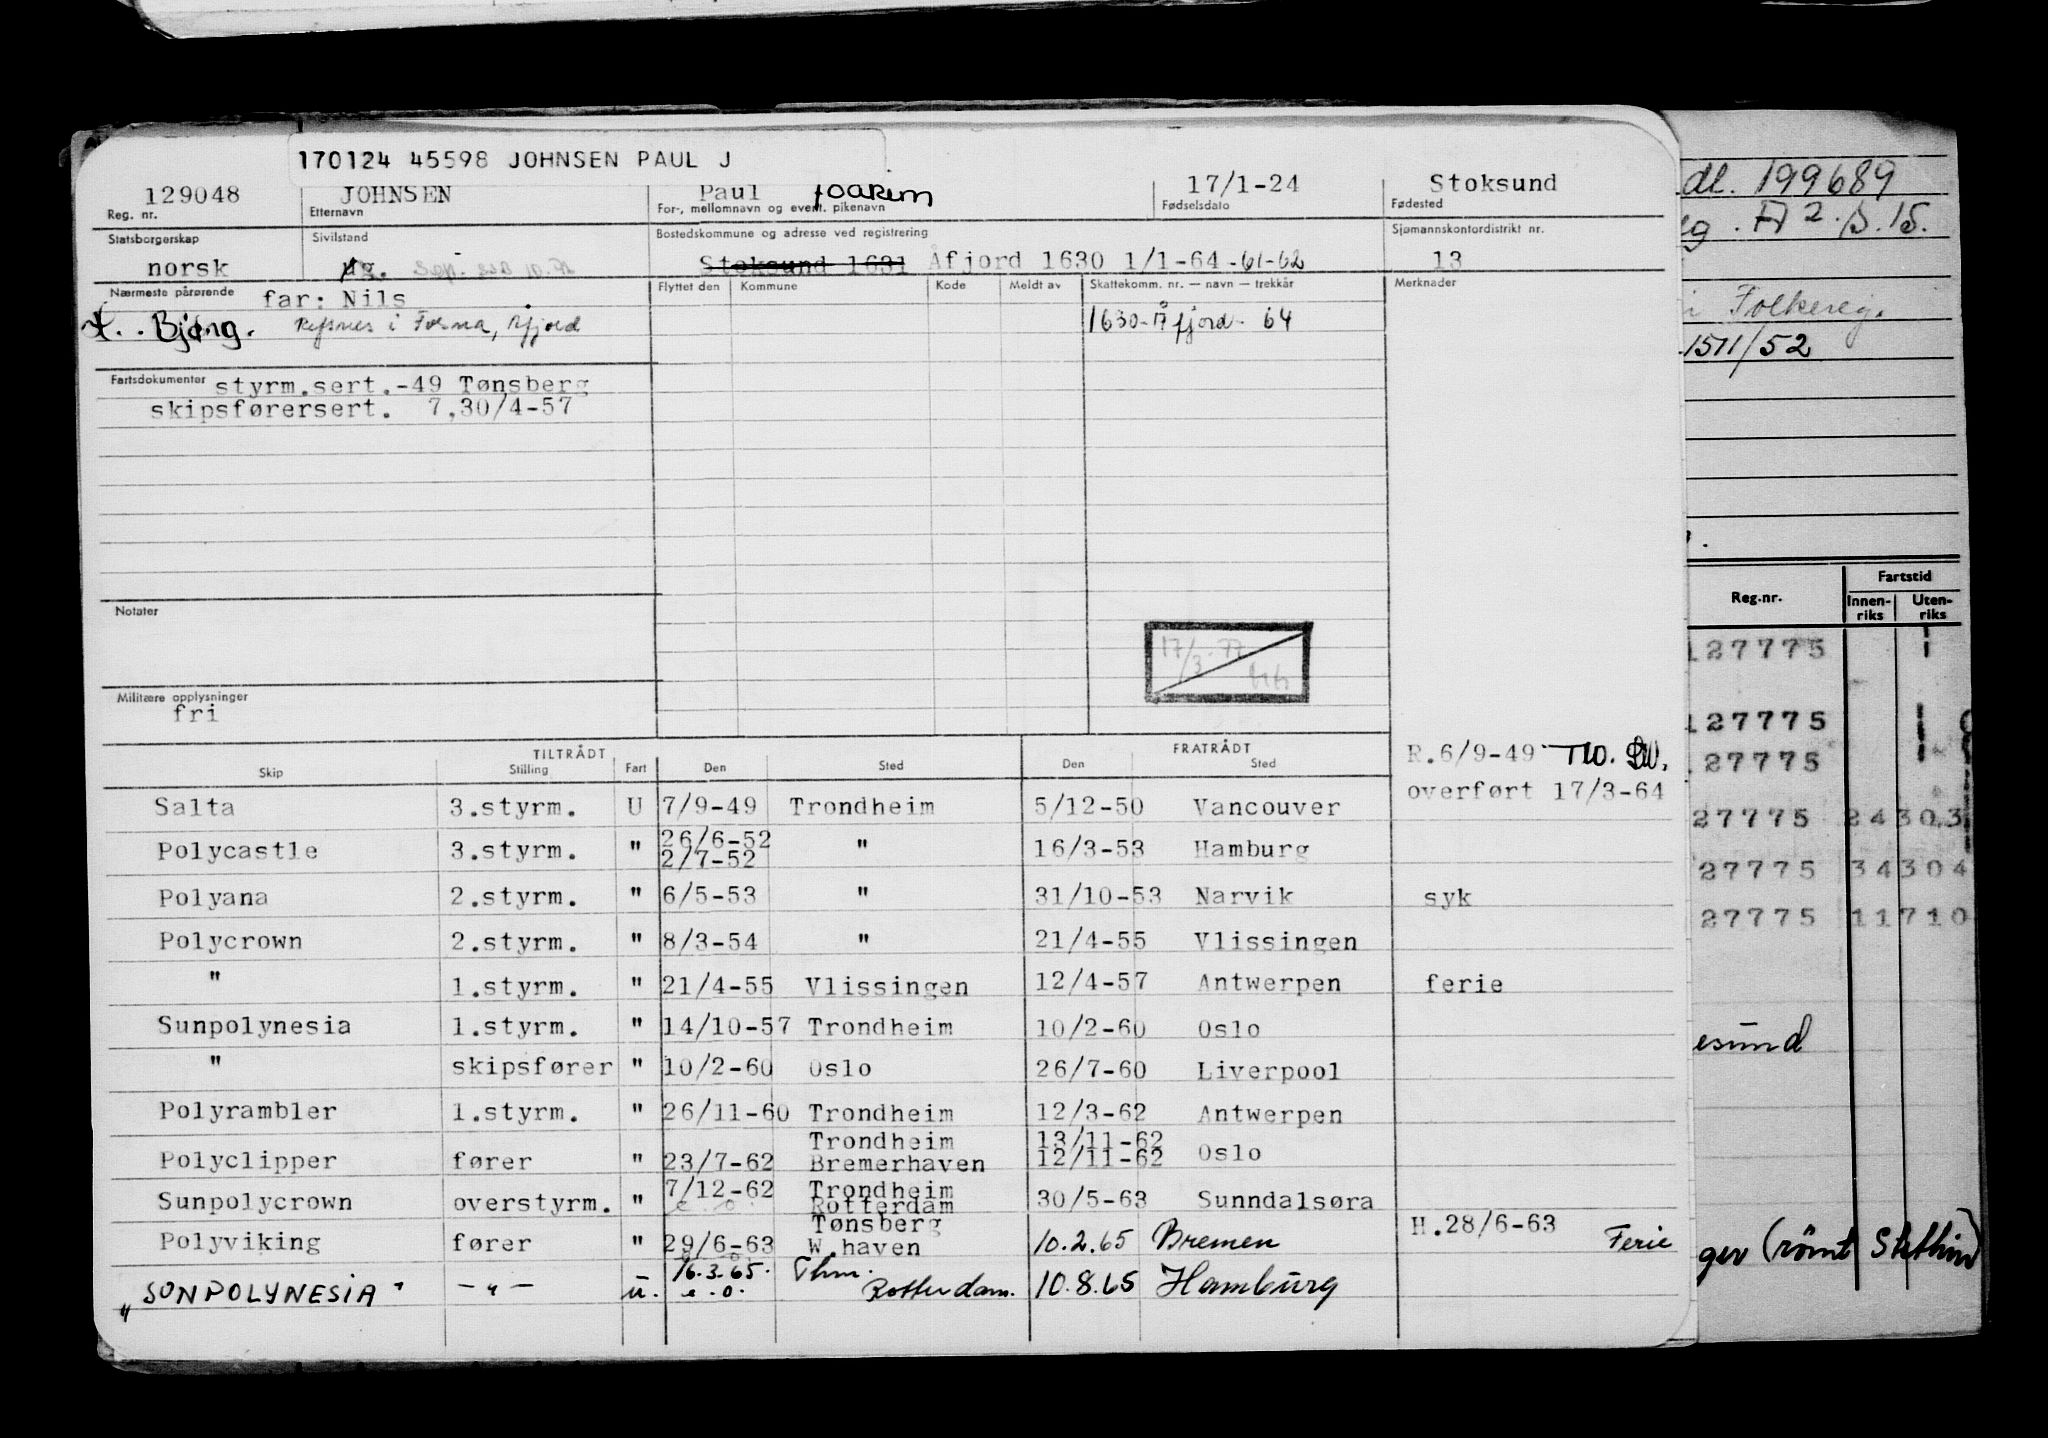 170124 45598 JOHNSEN PAUL J
129048 JOHNSEN Paul Joakim 17/1-24 Stoksund
Reg. nr. Etternavn For-, mellomnavn og event. pikenavn Fødselsdato Fødested
Statsborgerskap Sivilstand Bostedskommune og adresse ved registrering Sjømannskontordistrikt nr.
norsk ug. Sep. Stoksund 1631 Åfjord 1630 1/1-64 -61-62 13
Nærmeste pårørende far: Nils Flyttet den Kommune Kode Meldt av Skattekomm. nr. — navn — trekkår Merknader
Bjørg. Refsnes i Fosna, Åfjord 1630-Åfjord- 64
Fartsdokumenter styrm.sert.-49 Tønsberg
skipsførersert. 7,30/4-57
Notater
17/3.77
Militære opplysninger
fri
TILTRÅDT FRATRÅDT R.6/9-49
Skip Stilling Fart Den Sted Den Sted
overført 17/3-64
Salta 3.styrm. U 7/9-49 Trondheim 5/12-50 Vancouver
26/6-52
Polycastle 3.styrm. " 2/7-52 " 16/3-53 Hamburg
Polyana 2.styrm. " 6/5-53 " 31/10-53 Narvik syk
Polycrown 2.styrm. " 8/3-54 " 21/4-55 Vlissingen
" 1.styrm. " 21/4-55 Vlissingen 12/4-57 Antwerpen ferie
Sunpolynesia 1.styrm. " 14/10-57 Trondheim 10/2-60 Oslo
" skipsfører " 10/2-60 Oslo 26/7-60 Liverpool
Polyrambler 1.styrm. " 26/11-60 Trondheim 12/3-62 Antwerpen
Trondheim 13/11-62
Polyclipper fører " 23/7-62 Bremerhaven 12/11-62 Oslo
7/12-62 Trondheim
Sunpolycrown overstyrm. " e.o. Rotterdam 30/5-63 Sunndalsøra
Tønsberg H.28/6-63
Polyviking fører " 29/6-63 W.haven 10.2.65 Bremen Ferie
16.3.65. Thm.
"SUNPOLYNESIA" -"- u. e.o. Rotterdam. 10.8.65 Hamburg
dl. 199689
i Folkereg.
1511/52
Reg.nr. Fartstid
Innen-riks Uten-riks
127775
127775
27775
27775 24303
27775 34304
27775 11710
esund
ger (rømt Stettin)